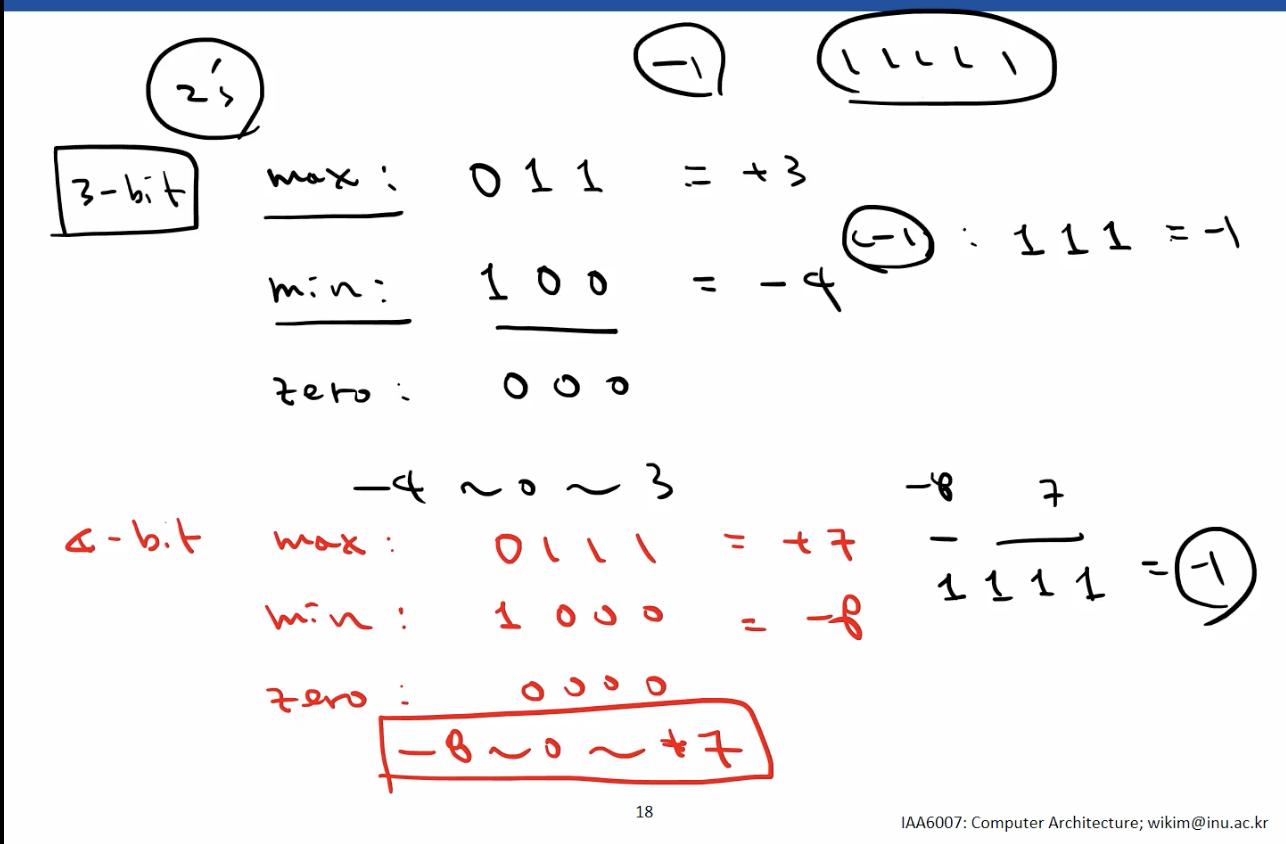 2's
-1 11111
3-bit max: 011 = +3
(-1): 111 = -1
min: 100 = -4
zero: 000
-4 ~ 0 ~ 3
-8 7
4-bit max: 0111 = +7
1111 = -1
min: 1000 = -8
zero: 0000
-8 ~ 0 ~ +7
18
IAA6007: Computer Architecture; wikim@inu.ac.kr